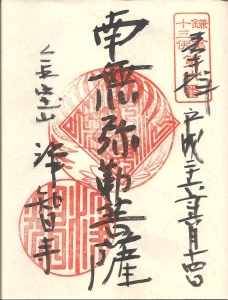 鎌倉
十三佛
奉拝
平成二十六年 月十四日
南無弥勒菩薩
金宝山 浄智寺